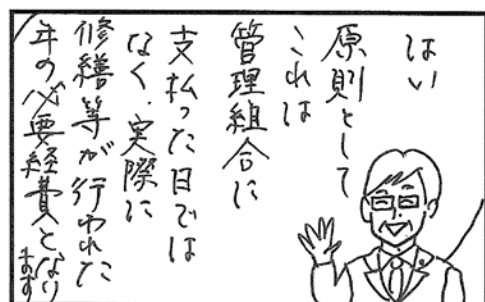 はい
原則として
これは
管理組合に
支払った日では
なく、実際に
修繕等が行われた
年の必要経費となります